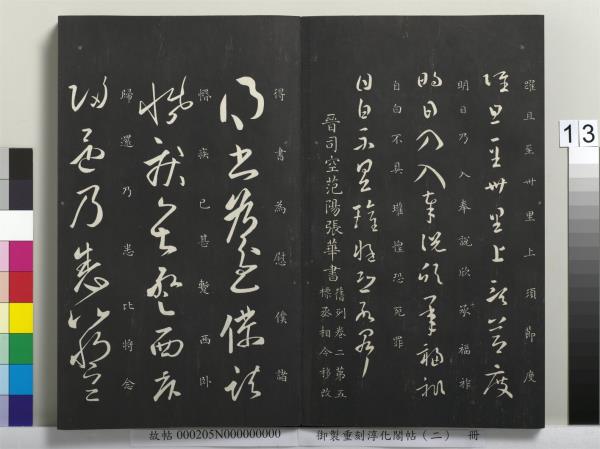 躍且至卅里上須節度
明日乃入奉說欣承福祚
自白不具璀惶恐死罪
晉司空范陽張華書
舊列卷二第五
標丞相今移改
得書為慰僕諸
患已甚蹔西卧
歸還乃悉比將念
13
故帖 000205N000000000 御製重刻淳化閣帖(二) 冊